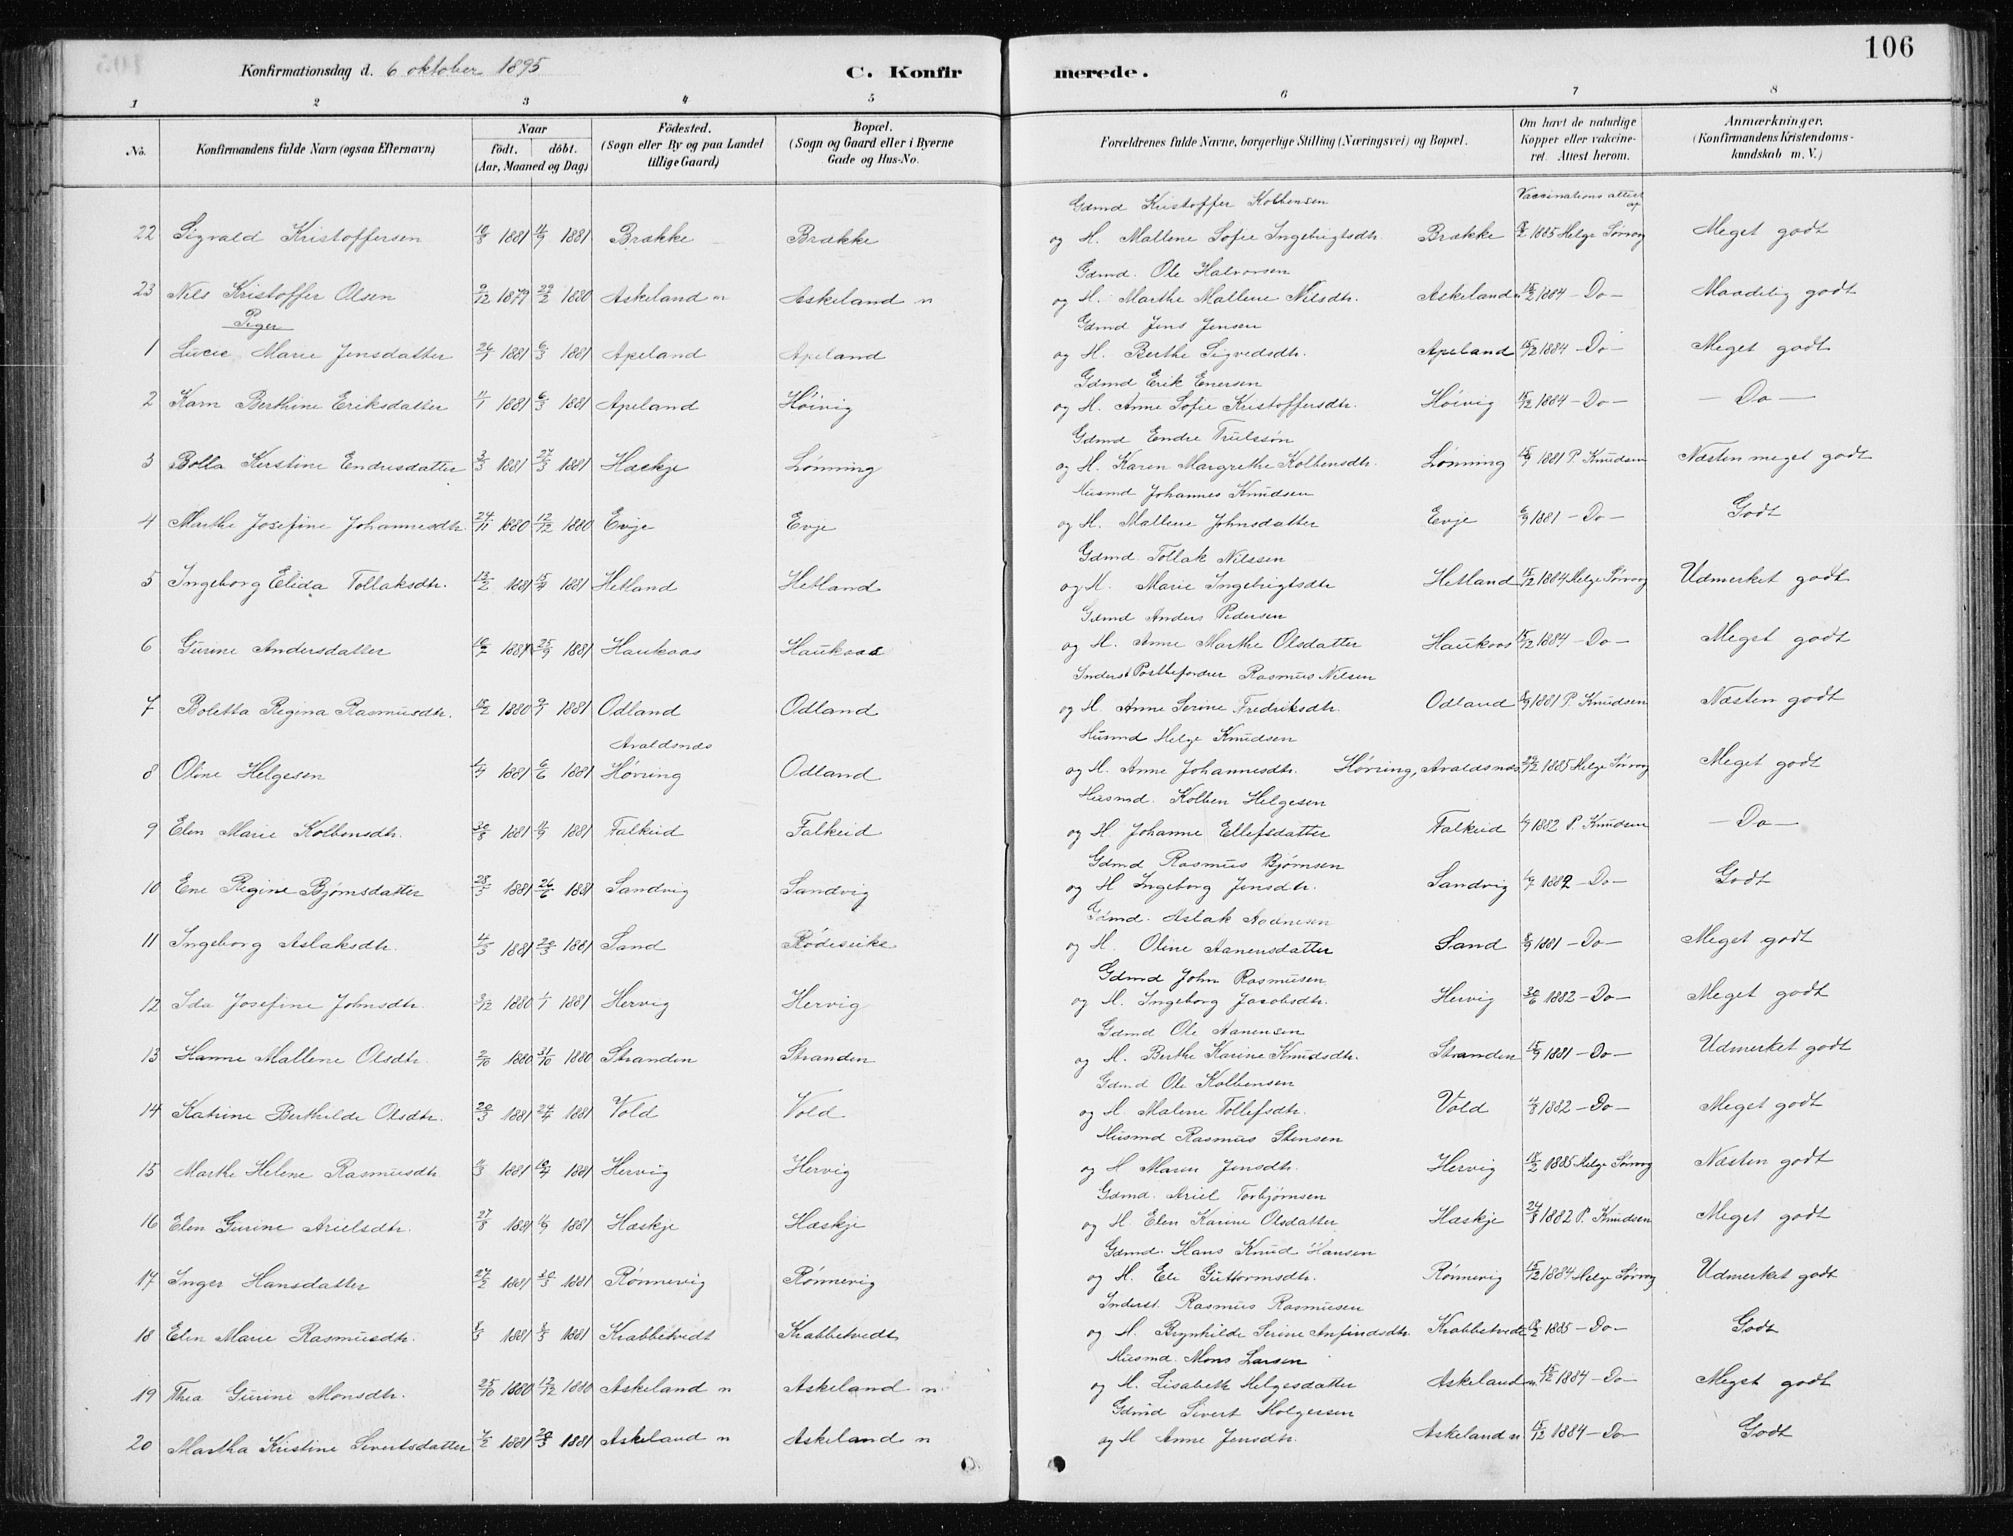 106
Konfirmationsdag d. 6 oktober 1895 C. Konfir merede.
1 2 3 4 5 6 7 8
No. Konfirmandens fulde Navn (ogsaa Efternavn) Naar födt. döbt. (Aar, Maaned og Dag) Födested. (Sogn eller By og paa Landet tillige Gaard) Bopæl. (Sogn og Gaard eller i Byerne Gade og Hus-No. Forældrenes fulde Navne, borgerlige Stilling (Næringsvei) og Bopæl. Om havt de naturlige Kopper eller vakcineret. Attest herom. Anmærkninger. (Konfirmandens Kristendomskundskab m. V.)
Gdmd Kristoffer Kolbensen Vaccinations attest af
22 Sigvald Kristoffersen 1881 1881 Brække Brække og H. Mallene Sofie Ingebrigtsdtr. Brække 1885 Helge Sørvog Meget godt
Gdmd. Ole Halvorsen
23 Nils Kristoffer Olsen 9/12 1879 29/2 1880 Askeland n Askeland n og H. Marthe Mallene Nilsdtr. Askeland n 15/12 1884 - Do - Maadelig godt
Piger
Gdmd Jens Jensen
1 Lucie Marie Jensdatter 26/1 1881 6/3 1881 Apeland Apeland og H. Berthe Sigvedsdtr. Apeland 15/12 1884 - Do - Meget godt
Gdmd Erik Enersen
2 Karn Berthine Eriksdatter 1881 6/3 1881 Apeland Höivig og H. Anne Sofie Kristoffersdtr. Höivig 15/12 1884 - Do - - Do -
Gdmd Endre Trulssön
3 Bolla Kerstine Endresdatter 3/3 1881 27/3 1881 Hæskje Lönning og H. Karen Margrethe Kolbensdtr. Lönning 1881 P. Knudsen Næsten meget godt
Husmd Johannes Knudsen
4 Marthe Josefine Johannesdtr. 24/11 1880 12/12 1880 Evje Evje og H. Mallene Johnsdatter Evje 6/9 1881 - Do - Godt
Gdmd. Tollak Nilssen
5 Ingeborg Elida Tollaksdtr. 13/2 1881 15/4 1881 Hetland Hetland og H. Marie Ingebrigtsdtr Hetland 15/12 1884 Helge Sørvog Udmerket godt
Gdmd Anders Pedersen
6 Gurine Andersdatter 1881 25/9 1881 Haukaas Haukaas og H. Anne Marthe Olsdatter Haukaas 15/12 1884 - Do - Meget godt
Inderst Postbefordrer Rasmus Nilsen
7 Boletta Regina Rasmusdtr. 1880 1881 Odland Odland og H. Anne Serine Fredriksdtr. Odland 1881 P. Knudsen Næsten godt
Avaldsnæs Husmd Helge Knudsen
8 Oline Helgesen 1881 6/6 1881 Høring Odland og H. Anne Johannesdtr. Høring, Avaldsnæs 1885 Helge Sørvog Meget godt
Husmd. Kolben Helgesen
9 Elen Marie Kolbensdtr. 1881 1881 Falkeid Falkeid og H Johanne Ellefsdatter Falkeid 1882 P. Knudsen - Do -
Gdmd Rasmus Bjørnsen
10 Ene Regine Bjørnsdatter 28/3 1881 26/6 1881 Sandvig Sandvig og H Ingeborg Jensdtr. Sandvig 1882 - Do - Godt
Gdmd. Aslak Aadnesen
11 Ingeborg Aslaksdtr. 4/3 1881 20/3 1881 Sand Rödeseike og H. Oline Aanensdatter Sand 8/9 1881 - Do - Meget godt
Gdmd John Rasmusen
12 Ida Josefine Johnsdtr. 3/12 1880 1/1 1881 Hervig Hervig og H. Ingeborg Jacobsdtr. Hervig 30/6 1882 - Do - Meget godt
Gdmd Ole Aanensen
13 Hanne Mallene Olsdtr. 2/10 1880 31/10 1880 Stranden Stranden og H. Berthe Karine Knudsdtr. Stranden 15/9 1881 - Do - Udmerket godt
Gdmd Ole Kolbensen
14 Katrine Berthilde Olsdtr. 20/3 1881 24/4 1881 Vold Vold og H. Malene Tollefsdtr. Vold 1882 - Do - Meget godt
Husmd Rasmus Stensen
15 Marthe Helene Rasmusdtr. 1881 1881 Hervig Hervig og H Maren Jensdtr. Hervig 1885 Helge Sørvog Næsten godt
Gdmd. Ariel Torbjørnsen
16 Elen Gurine Arielsdtr. 27/8 1881 1881 Hæskje Hæskje og H. Elen Karine Olsdatter Hæskje 24/8 1882 P. Knudsen Meget godt
Gdmd. Hans Knud Hansen
17 Inger Hansdatter 27/2 1881 20/3 1881 Rönnevig Rönnevig og H. Eli Guttormsdtr. Rönnevig 15/12 1884 Helge Sørvog Udmerket godt
Inderst. Rasmus Rasmusen
18 Elen Marie Rasmusdtr. 1881 1881 Krabbetvedt Krabbetvedt og H. Brynhilde Serine Anfindsdtr. Krabbetvedt 1885 - Do - Godt
Husmd. Mons Larsen
19 Thea Gurine Monsdtr. 25/10 1880 12/12 1880 Askeland n Askeland n. og H. Lisabeth Helgesdatter Askeland n. 15/12 1884 - Do - Meget godt
Gdmd Sivert Holgersen
20 Martha Kristine Sivertsdatter 1881 20/3 1881 Askeland n Askeland n og H Anne Jensdtr. Askeland n 15/12 1884 - Do - Godt